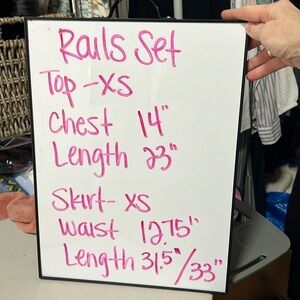 Rails Set
Top - XS
Chest 14"
Length 23"
Skirt - XS
Waist 12.75"
Length 31.5"/33"